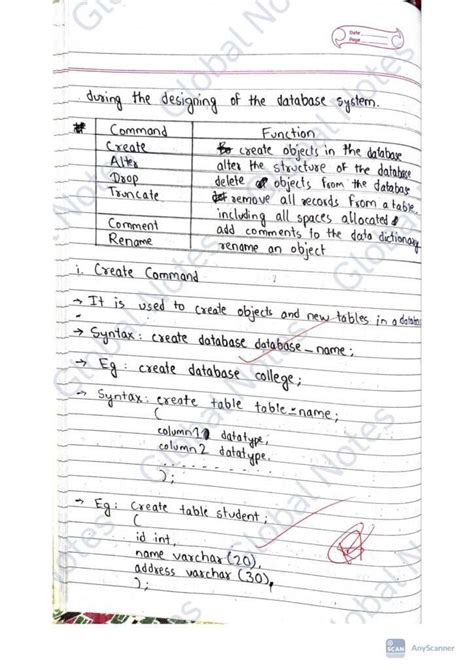 Date
Page
during the designing of the database system.
Command Function
Create create objects in the database
Alter alter the structure of the database
Drop delete objects from the database
Truncate remove all records from a table,
including all spaces allocated
Comment add comments to the data dictionary
Rename rename an object
i. Create Command
→ It is used to create objects and new tables in a
→ Syntax: create database database_name;
→ Eg: create database college;
→ Syntax: create table table_name;
(
column1 datatype,
column2 datatype,
. . . . . . . .
);
→ Eg: Create table student;
(
id int,
name varchar (20),
address varchar (30),
);
Global Notes
SCAN AnyScanner